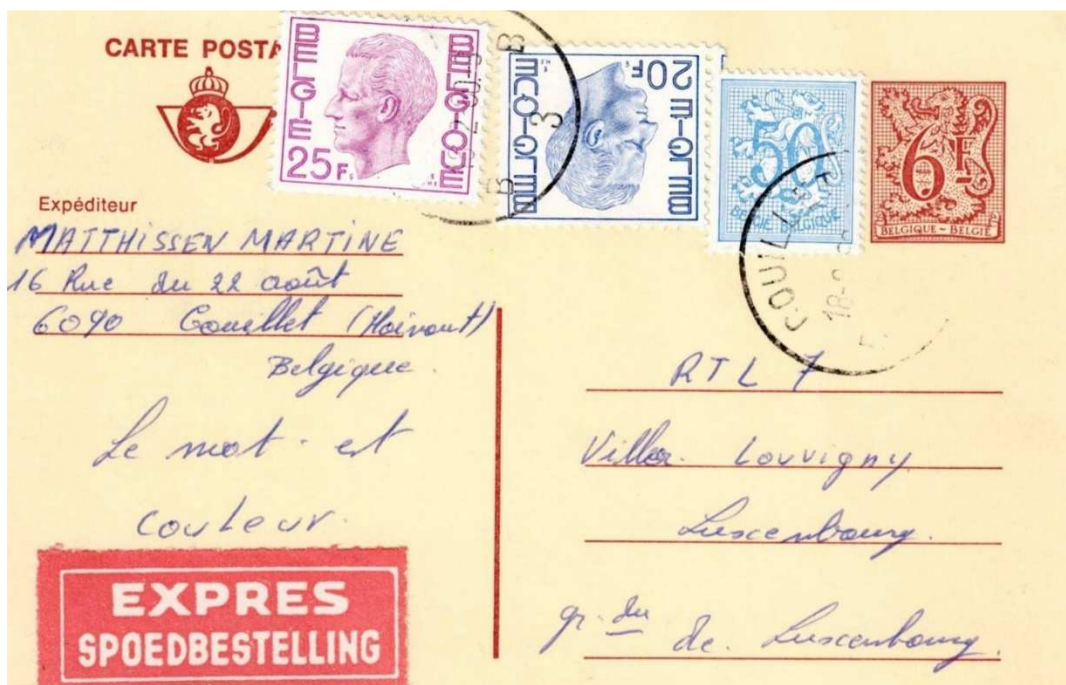 CARTE POSTA
BELGIE
BELGIQUE
25F
BELGIE
BELGIQUE
20F
50
BELGIE BELGIQUE
6F
BELGIQUE - BELGIË
B
3
B
COUILL
18-
Expéditeur
MATTHISSEN MARTINE
16 Rue du 22 août
6090 Couillet (Hainaut)
Belgique.
Le mot. est
couleur.
EXPRES
SPOEDBESTELLING
RTL 7
Villa. Louvigny.
Luxembourg.
gr. du
de. Luxembourg.